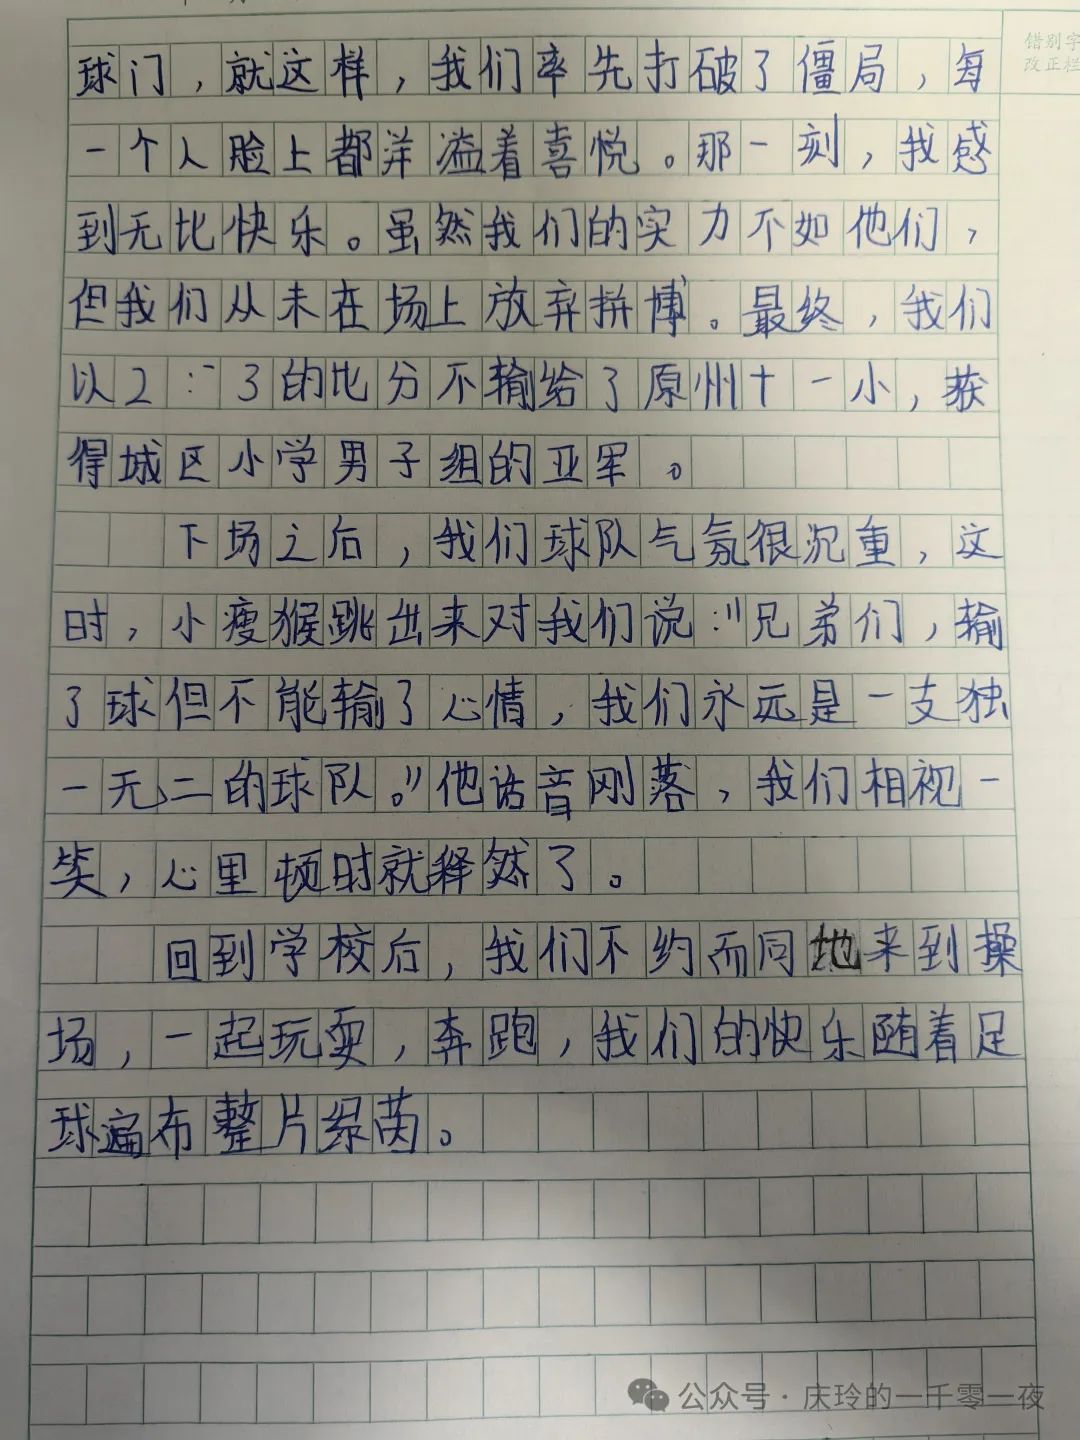 错别字
改正栏
球门，就这样，我们率先打破了僵局，每
一个人脸上都洋溢着喜悦。那一刻，我感
到无比快乐。虽然我们的实力不如他们，
但我们从未在场上放弃拼博。最终，我们
以2:3的比分不输给了原州十一小，获
得城区小学男子组的亚军。
下场之后，我们球队气氛很沉重，这
时，小瘦猴跳出来对我们说："兄弟们，输
了球但不能输了心情，我们永远是一支独
一无二的球队。"他话音刚落，我们相视一
笑，心里顿时就释然了。
回到学校后，我们不约而同地来到操
场，一起玩耍，奔跑，我们的快乐随着足
球遍布整片绿茵。
公众号·庆玲的一千零一夜